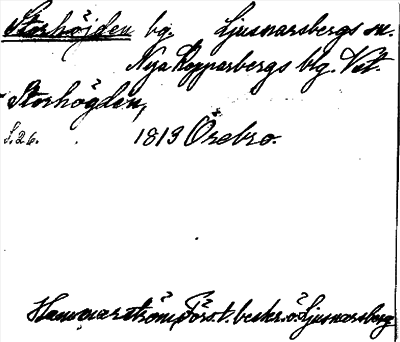 Storhöjden bg. Ljusnarsbergs sn.
Nya Kopparbergs blg. Vet.
Storhögden,
S. 26. 1813 Örebro.
Hammarström, Förs. t. beskr. ö. Ljusnarsberg